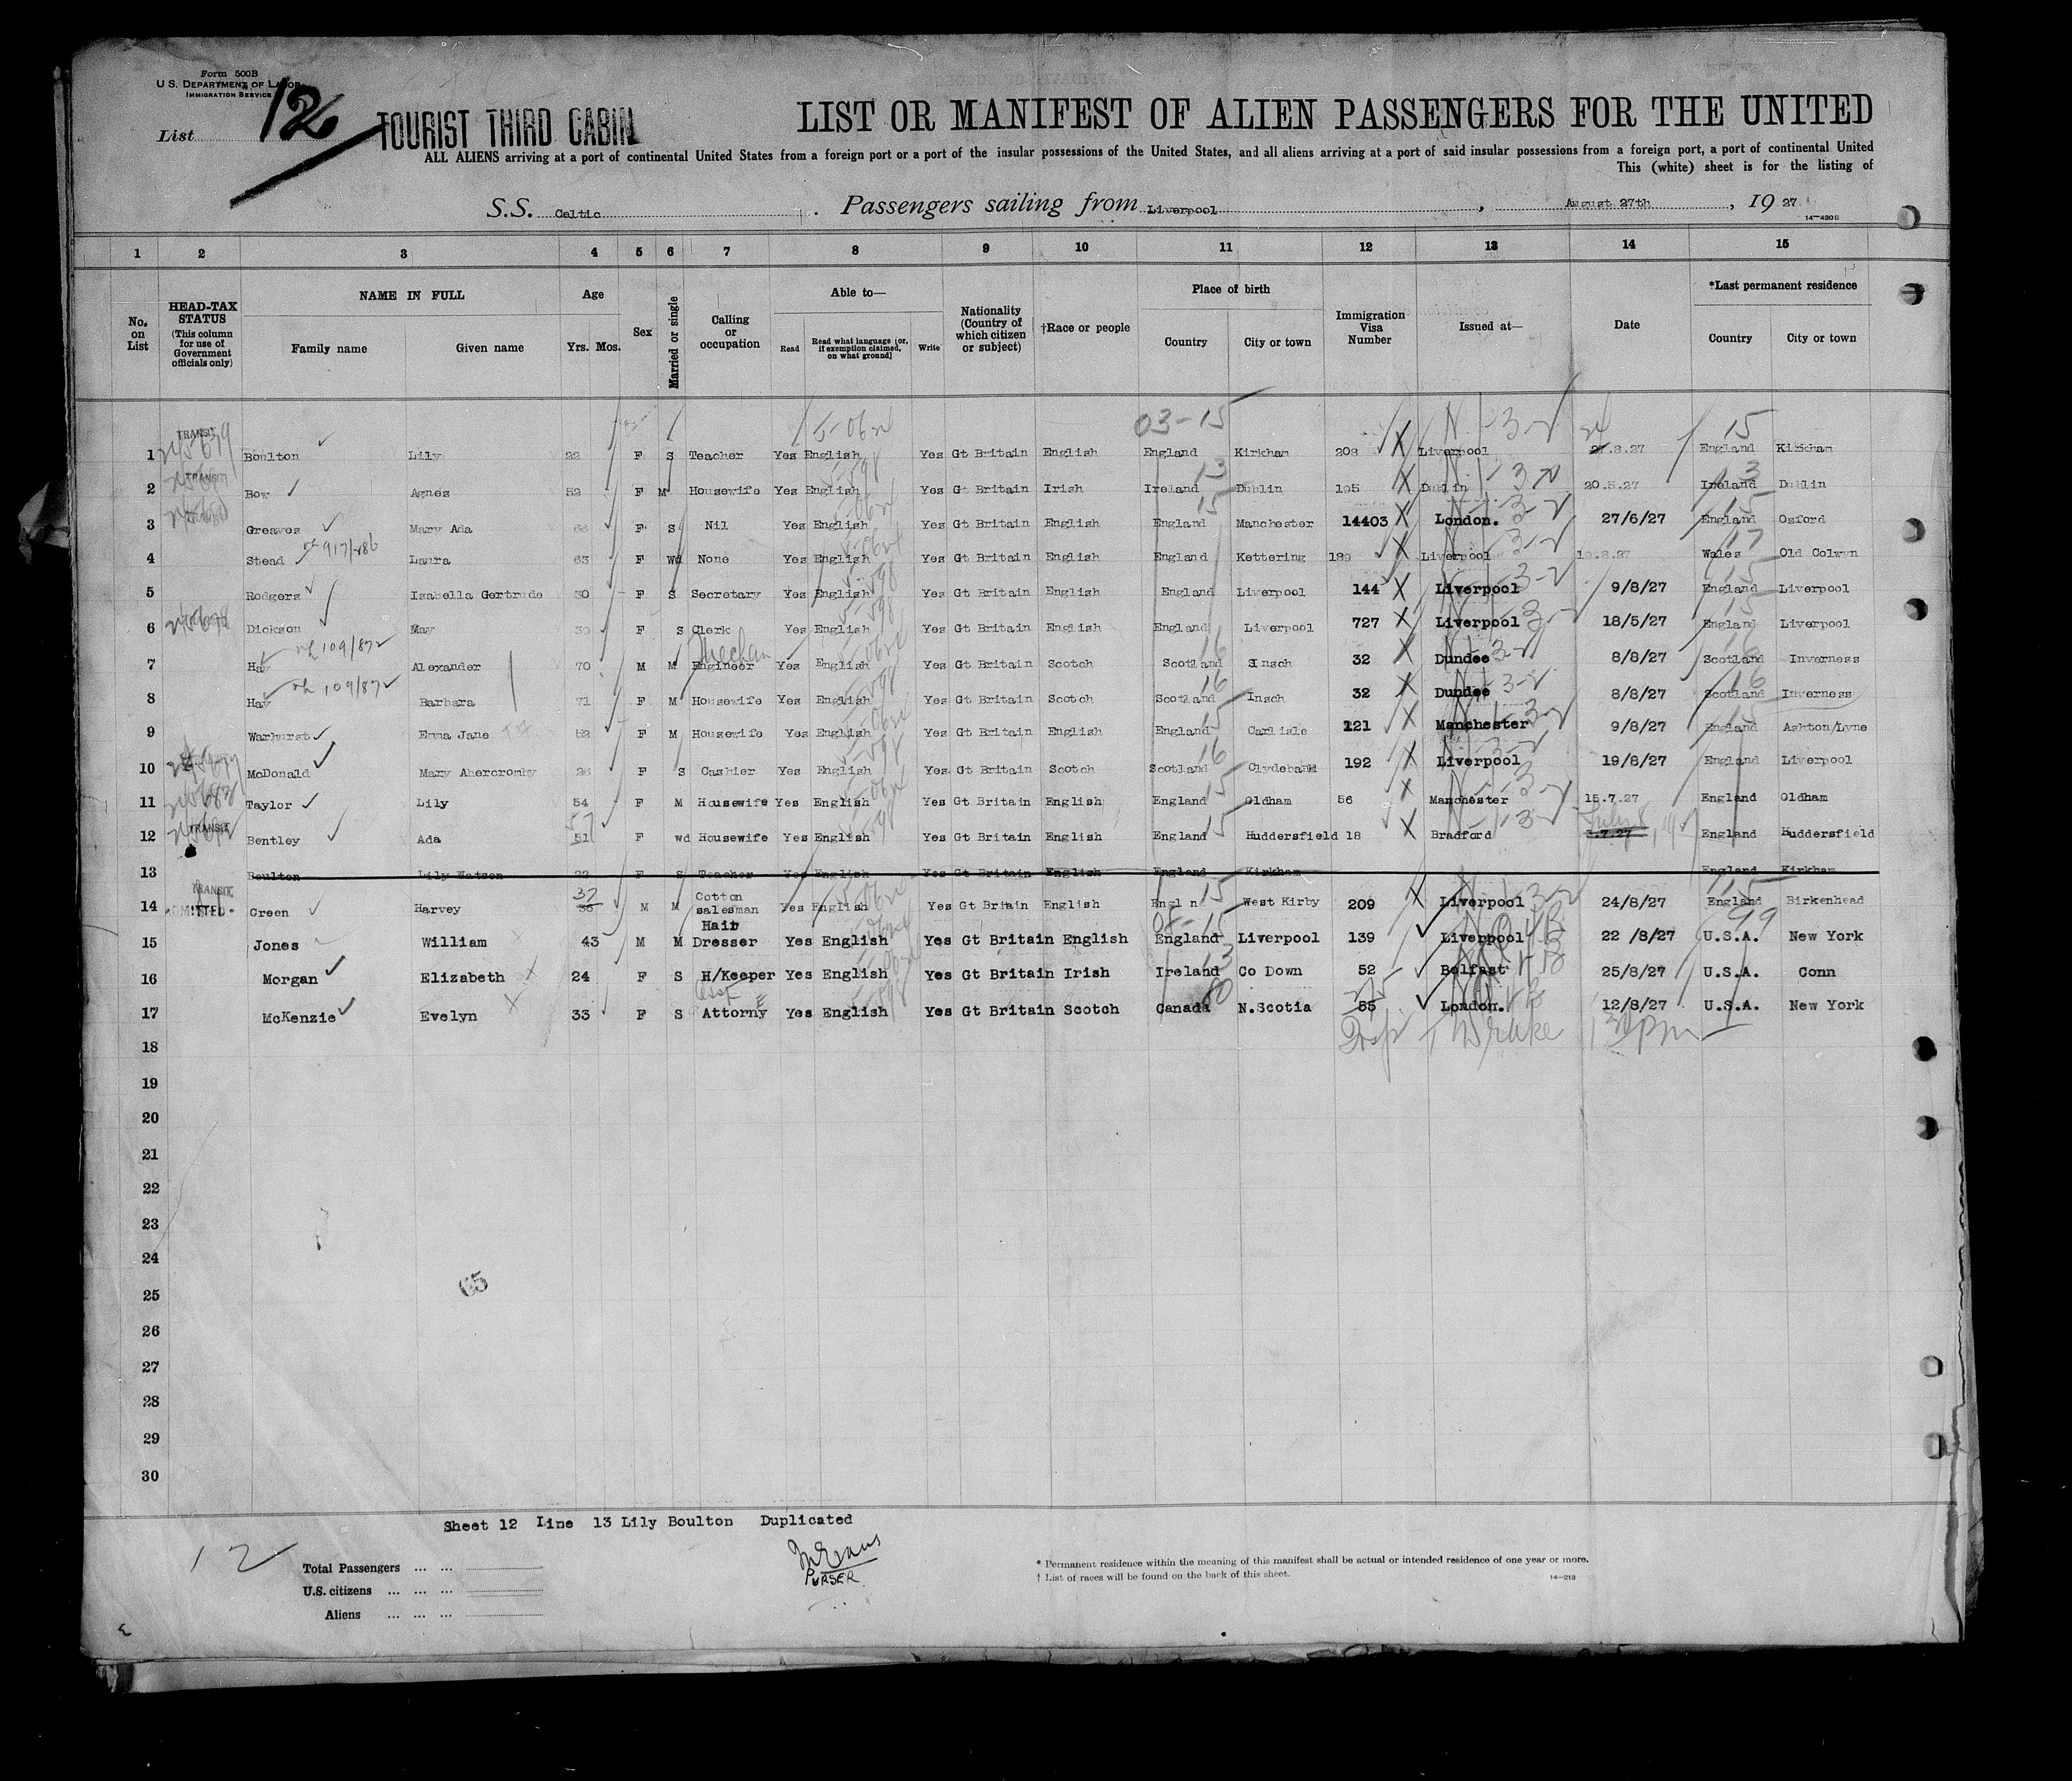 Form 500B
U.S. DEPARTMENT OF LABOR
IMMIGRATION SERVICE
List 12
TOURIST THIRD CABIN
LIST OR MANIFEST OF ALIEN PASSENGERS FOR THE UNITED
ALL ALIENS arriving at a port of continental United States from a foreign port or a port of the insular possessions of the United States, and all aliens arriving at a port of said insular possessions from a foreign port, a port of continental United
This (white) sheet is for the listing of
S.S. Celtic. Passengers sailing from Liverpool, August 27th, 19 27
14-430S
1 2 3 4 5 6 7 8 9 10 11 12 13 14 15
No. on List
HEAD-TAX STATUS (This column for use of Government officials only)
NAME IN FULL
Family name Given name
Age
Yrs. Mos.
Sex
Married or single
Calling or occupation
Able to—
Read Read what language [or, if exemption claimed, on what ground] Write
Nationality (Country of which citizen or subject)
†Race or people
Place of birth
Country City or town
Immigration Visa Number
Issued at—
Date
*Last permanent residence
Country City or town
5-06 03-15 15
TRANSIT
1 Boulton Lily 22 F S Teacher Yes English Yes Gt Britain English England Kirkham 208 X Liverpool .8.27 England Kirkham
TRANSIT
2 Bow Agnes 52 F M Housewife Yes English Yes Gt Britain Irish Ireland Dublin 195 X Dublin 20.5.27 Ireland Dublin
3 Greaves Mary Ada F S Nil Yes English Yes Gt Britain English England Manchester 14403 X London. 27/6/27 England Oxford
4 Stead Laura 63 F Wd None Yes English Yes Gt Britain English England Kettering 189 X Liverpool .8.27 Wales Old Colwyn
5 Rodgers Isabella Gertrude 30 F S Secretary Yes English Yes Gt Britain English England Liverpool 144 X Liverpool 9/8/27 England Liverpool
6 Dickson May F S Clerk Yes English Yes Gt Britain English England Liverpool 727 X Liverpool 18/5/27 England Liverpool
109/872 Mechan
7 Hay Alexander 70 M M Engineer Yes English Yes Gt Britain Scotch Scotland Insch 32 X Dundee 8/8/27 Scotland Inverness
109/872
8 Hay Barbara 71 F M Housewife Yes English Yes Gt Britain Scotch Scotland Insch 32 X Dundee 8/8/27 Scotland Inverness
9 Warhurst Emma Jane 52 F M Housewife Yes English Yes Gt Britain English England Carlisle 121 X Manchester 9/8/27 England Ashton/Lyne
10 McDonald Mary Abercromby F S Cashier Yes English Yes Gt Britain Scotch Scotland Clydebank 192 X Liverpool 19/8/27 England Liverpool
11 Taylor Lily 54 F M Housewife Yes English Yes Gt Britain English England Oldham 56 X Manchester 15.7.27 England Oldham
57
TRANSIT
12 Bentley Ada 51 F wd Housewife Yes English Yes Gt Britain English England Huddersfield 18 X Bradford 3.7.27 England Huddersfield
13 Boulton Lily Watson 22 F S Teacher Yes English Yes Gt Britain English England Kirkham England Kirkham
TRANSIT
37 Cotton
14 Green Harvey 36 M M salesman Yes English Yes Gt Britain English Engl n West Kirby 209 X Liverpool 24/8/27 England Birkenhead
Hair
15 Jones William 43 M M Dresser Yes English Yes Gt Britain English England Liverpool 139 Liverpool 22 /8/27 U.S.A. New York
16 Morgan Elizabeth 24 F S H/Keeper Yes English Yes Gt Britain Irish Ireland Co Down 52 Belfast 25/8/27 U.S.A. Conn
17 McKenzie Evelyn 33 F S Attorny Yes English Yes Gt Britain Scotch Canada N.Scotia 55 London. 12/8/27 U.S.A. New York
18
19
20
21
22
23
24
25
26
27
28
29
30
65
Sheet 12 Line 13 Lily Boulton Duplicated
12
PURSER
Total Passengers ... ...
U.S. citizens ... ... ...
Aliens ... ... ...
* Permanent residence within the meaning of this manifest shall be actual or intended residence of one year or more.
† List of races will be found on the back of this sheet.
14-213